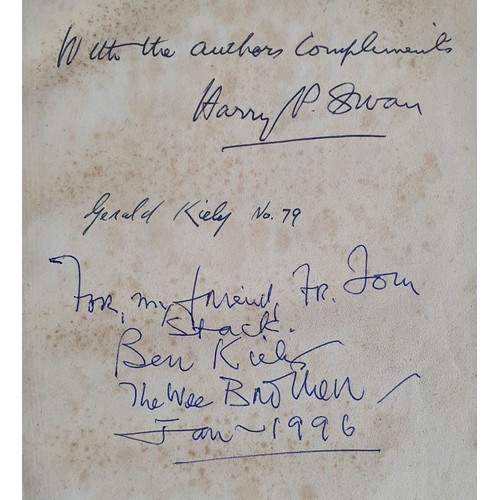 With the authors Compliments
Harry P. Swan
Gerald Kiely No. 79
For, my friend, Fr. Tom
Stack.
Ben Kiely
The Wee Brother
Jan ~ 1996